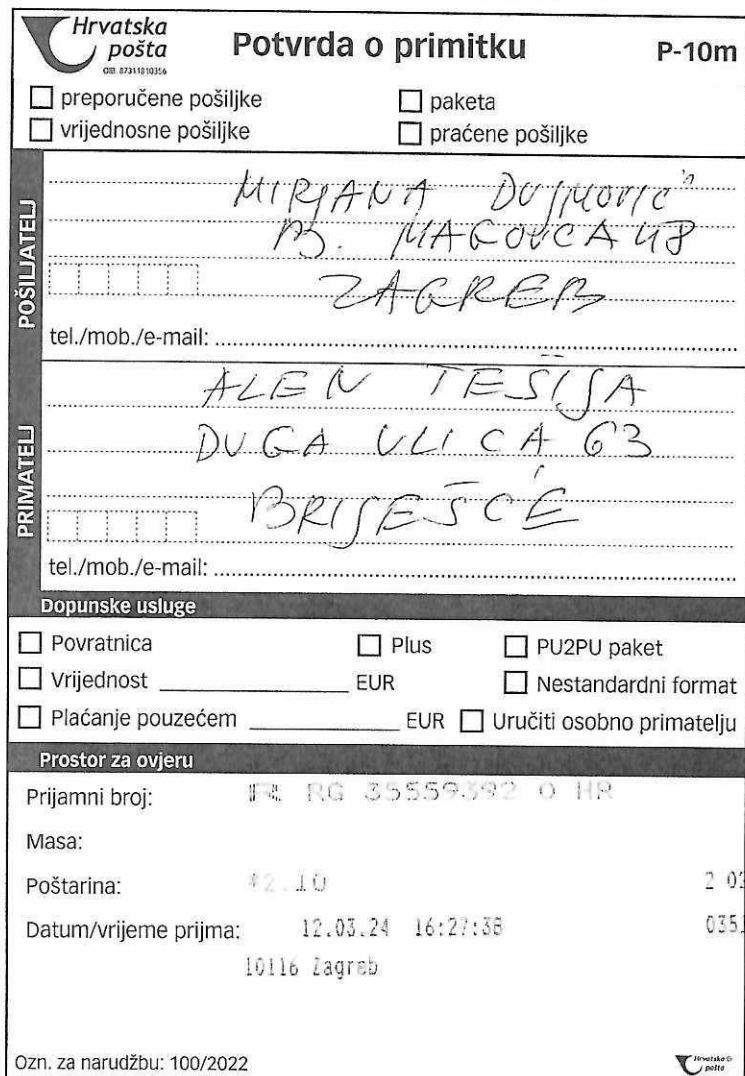 Hrvatska
pošta
OIB 87311810356
Potvrda o primitku
P-10m
preporučene pošiljke
paketa
vrijednosne pošiljke
praćene pošiljke
POŠILJATELJ
MIRJANA DUJMOVIĆ
B. MAGOVCA 48
ZAGREB
tel./mob./e-mail:
PRIMATELJ
ALEN TEŠIJA
DUGA ULICA 63
BRIJEŠĆE
tel./mob./e-mail:
Dopunske usluge
Povratnica
Plus
PU2PU paket
Vrijednost EUR
Nestandardni format
Plaćanje pouzećem EUR
Uručiti osobno primatelju
Prostor za ovjeru
Prijamni broj: RG 35559392 0 HR
Masa:
Poštarina: *2.10 2 03
Datum/vrijeme prijma: 12.03.24 16:27:38 0351
10116 Zagreb
Ozn. za narudžbu: 100/2022
Hrvatska
pošta